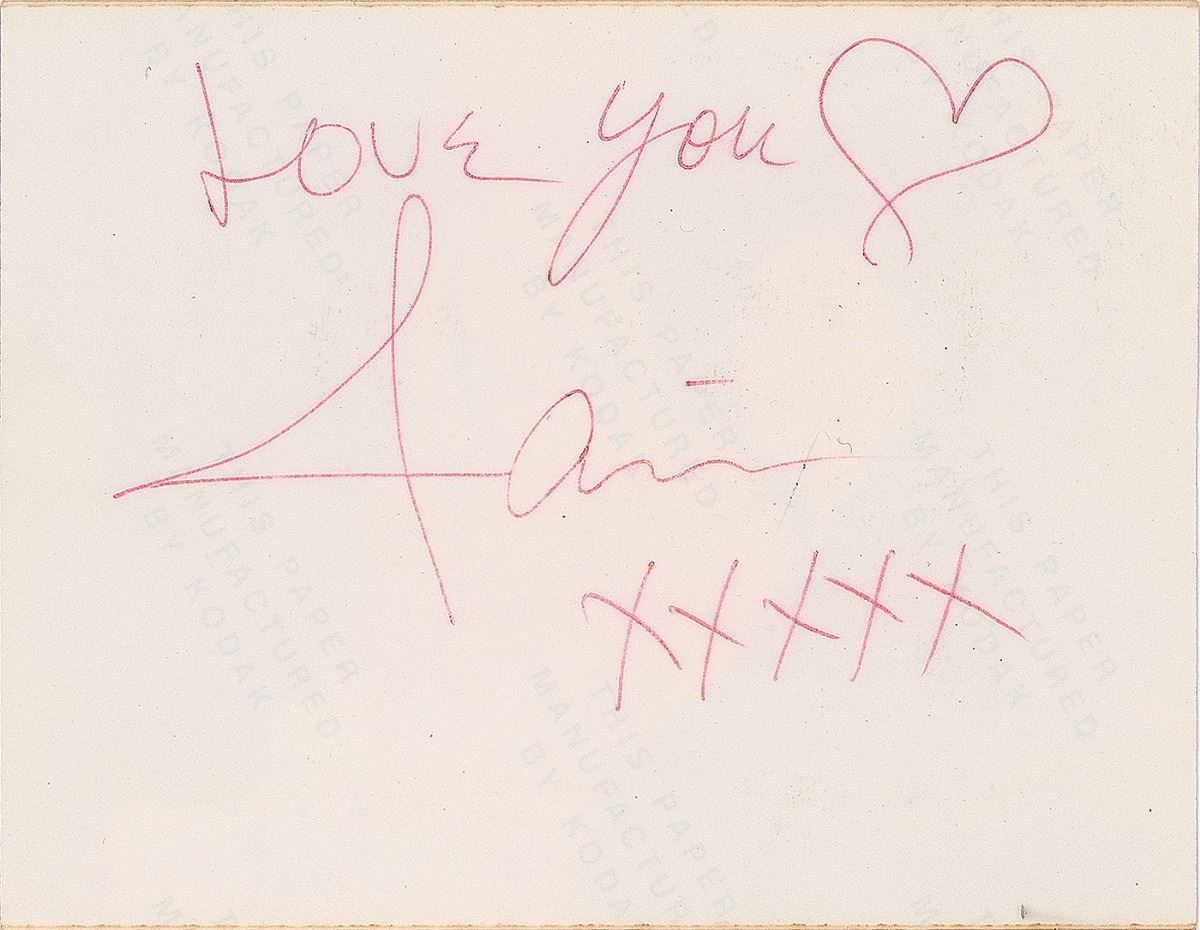 Love you
XXXXX
THIS PAPER
MANUFACTURED
BY KODAK
THIS PAPER
MANUFACTURED
BY KODAK
THIS PAPER
MANUFACTURED
BY KODAK
THIS PAPER
MANUFACTURED
BY KODAK
THIS PAPER
MANUFACTURED
BY KODAK